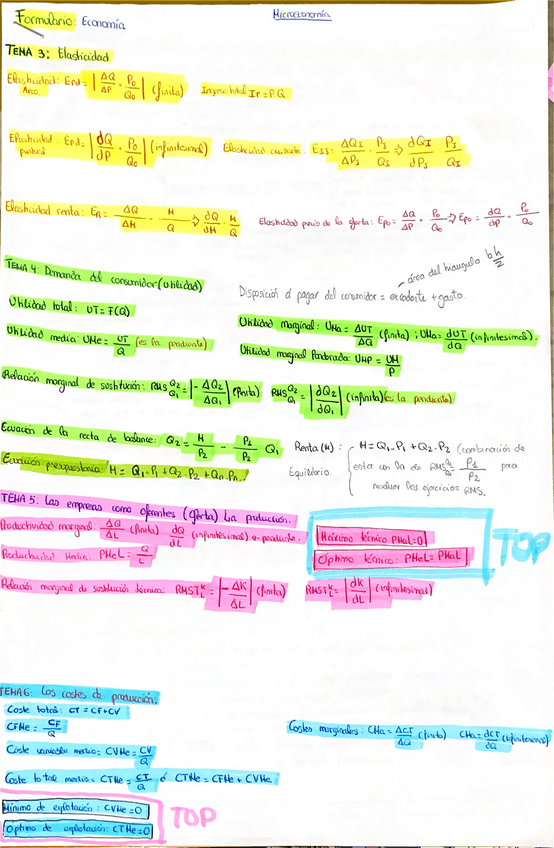 Formulario: Economía
Microeconomía
TEMA 3: Elasticidad
Elasticidad: Epd = |ΔQ/ΔP · P₀/Q₀| (finita) Ingreso total Ir = P.Q
Arco.
Elasticidad: Epd = |dQ/dP · P₀/Q₀| (infinitesimal) Elasticidad cruzada: EIJ = ΔQI/ΔPJ · PJ/QI ⇒ dQI/dPJ · PJ/QI
puntual
Elasticidad renta: ER = ΔQ/ΔM · M/Q ⇒ dQ/dM · M/Q Elasticidad precio de la oferta: Epo = ΔQ/ΔP · P₀/Q₀ ⇒ Epo = dQ/dP · P₀/Q₀
TEMA 4: Demanda del consumidor (utilidad)
área del triangulo b.h/2
Disposición a pagar del consumidor = excedente + gasto.
Utilidad total: UT = F(Q)
Utilidad marginal: UMa = ΔUT/ΔQ (finita) ; UMa = dUT/dQ (infinitesimal).
Utilidad media: UMe = UT/Q (es la pendiente)
Utilidad marginal Ponderada: UMP = UM/P
Relación marginal de sustitución: RMS Q₂ Q₁ = |-ΔQ₂/ΔQ₁| (finita) RMS Q₂ Q₁ = |dQ₂/dQ₁| (infinita) (es la pendiente)
Ecuación de la recta de balance: Q₂ = M/P₂ - P₁/P₂ Q₁
Renta (M): M = Q₁.P₁ + Q₂.P₂ (combinación de
Equilibrio esta con la de RMS Q₂ Q₁ = P₁/P₂ para
resolver los ejercicios RMS.
Ecuación presupuestaria: M = Q₁.P₁ + Q₂.P₂ + Qn.Pn.
TEMA 5: Las empresas como oferentes (oferta) La producción.
Productividad marginal: ΔQ/ΔL (finita) dQ/dL (infinitesimal) o pendiente.
Máximo técnico PMaL=0
Óptimo técnico: PMeL = PMaL
TOP
Productividad Media: PMeL = Q/L
Relación marginal de sustitución técnica: RMST K L = |-ΔK/ΔL| (finita) RMST K L = |dK/dL| (infinitesimal)
TEMA 6: Los costes de producción:
Coste total: CT = CF+CV
CFMe = CF/Q
Costes marginales: CMa = ΔCT/ΔQ (finito) CMa = dCT/dQ (infinitesimal)
Coste variable medio = CVMe = CV/Q
Coste total medio = CTMe = CT/Q ó CTMe = CFMe + CVMe
Mínimo de explotación: CVMe=0
Óptimo de explotación: CTMe=0
TOP